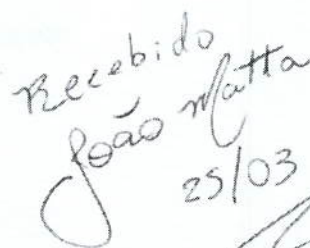 Recebido
João Matta
25/03